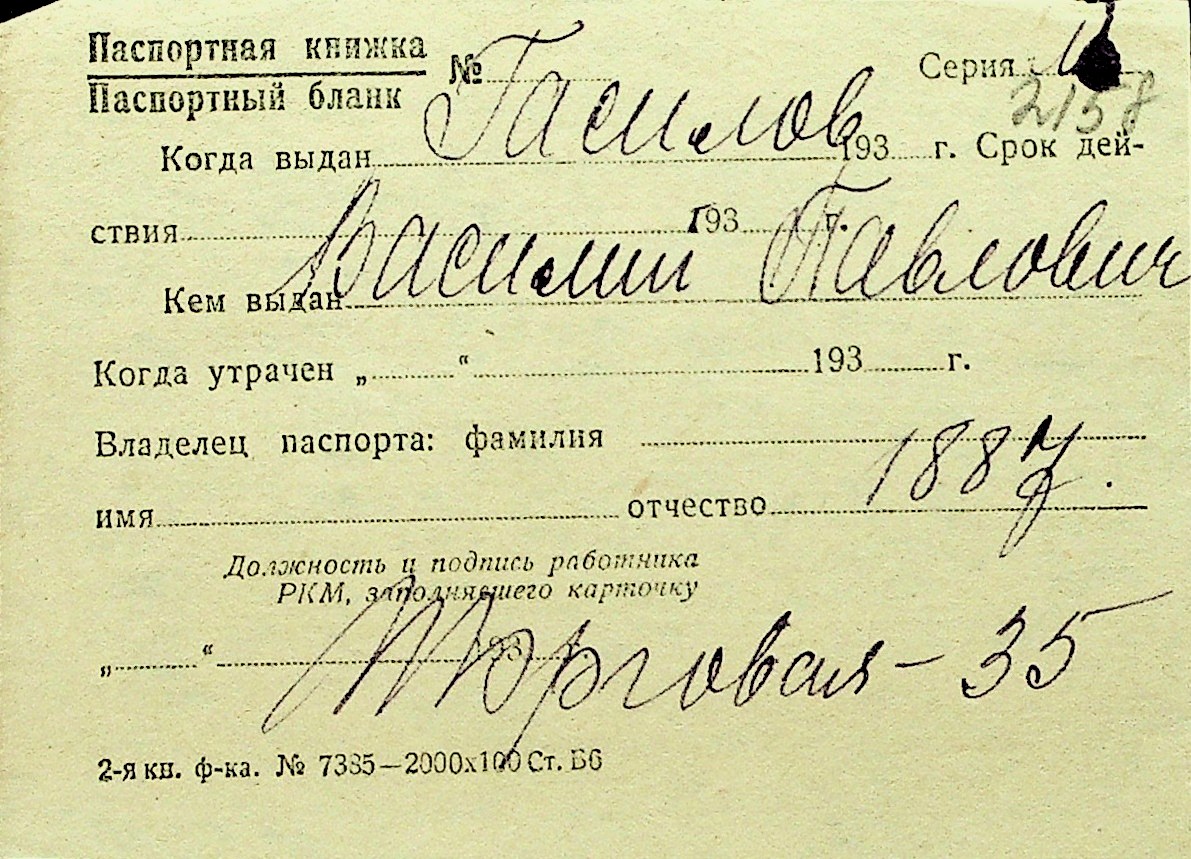 Паспортная книжка
Паспортный бланк
№ Серия
2158
Гасилов
Когда выдан 193 г. Срок дей-
ствия 193 г.
Василий Павлович
Кем выдан
Когда утрачен „ “ 193 г.
Владелец паспорта: фамилия
1887.
имя отчество
Должность и подпись работника
РКМ, заполнявшего карточку
„ “ 193
Торговая – 35
2-я кн. ф-ка. № 7385—2000х100 Ст. Б6